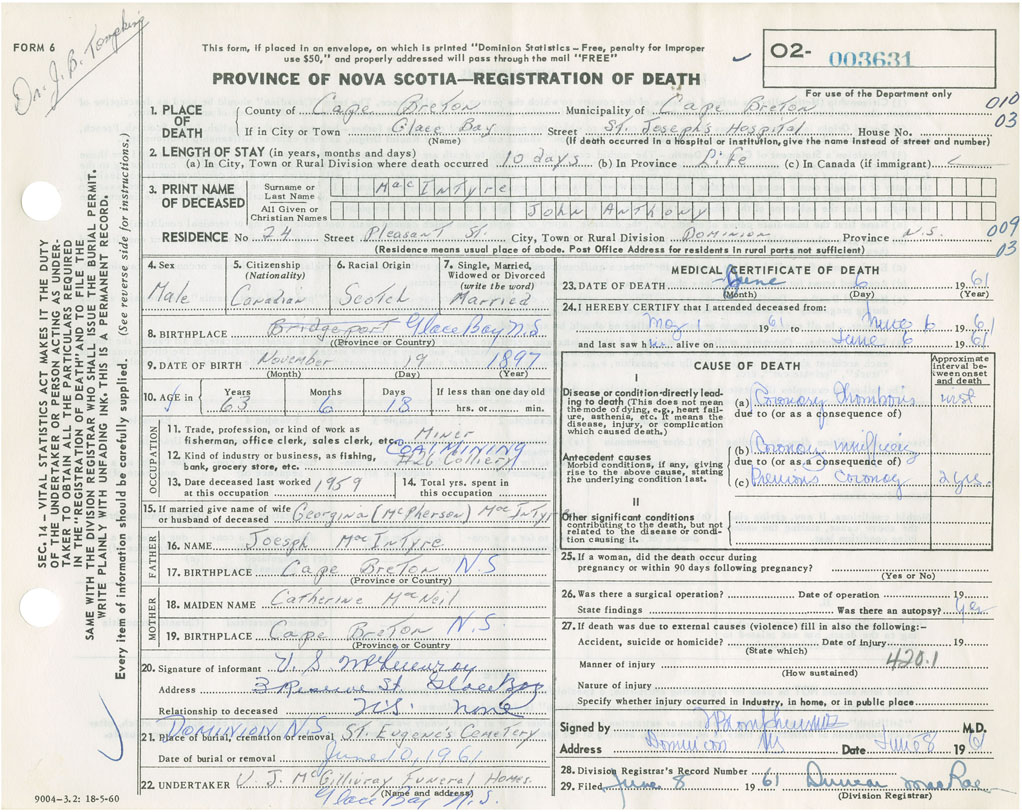 FORM 6
Dr. J. B. Tompkins
This form, if placed in an envelope, on which is printed "Dominion Statistics – Free, penalty for improper
use $50," and properly addressed will pass through the mail "FREE"
PROVINCE OF NOVA SCOTIA—REGISTRATION OF DEATH
02- 003631
For use of the Department only
010
03
1. PLACE OF DEATH
County of Cape Breton Municipality of Cape Breton
If in City or Town Glace Bay Street St. Joseph's Hospital House No.
(Name) (If death occurred in a hospital or institution, give the name instead of street and number)
2. LENGTH OF STAY (in years, months and days)
(a) In City, Town or Rural Division where death occurred 10 days (b) In Province Life (c) In Canada (if immigrant)
3. PRINT NAME OF DECEASED
Surname or Last Name MacIntyre
All Given or Christian Names John Anthony
RESIDENCE No 24 Street Pleasant St. City, Town or Rural Division Dominion Province N.S.
(Residence means usual place of abode. Post Office Address for residents in rural parts not sufficient)
009
03
4. Sex Male
5. Citizenship (Nationality) Canadian
6. Racial Origin Scotch
7. Single, Married, Widowed or Divorced (write the word) Married
8. BIRTHPLACE Bridgeport Glace Bay N.S
(Province or Country)
9. DATE OF BIRTH November 19 1897
(Month) (Day) (Year)
10. AGE in Years 63 Months 6 Days 18 If less than one day old hrs. or min.
OCCUPATION
11. Trade, profession, or kind of work as fisherman, office clerk, sales clerk, etc. Miner
12. Kind of industry or business, as fishing, bank, grocery store, etc. COAL MINING
#26 Colliery
13. Date deceased last worked at this occupation 1959
14. Total yrs. spent in this occupation
15. If married give name of wife or husband of deceased Georgina (McPherson) MacIntyre
FATHER
16. NAME Joesph MacIntyre
17. BIRTHPLACE Cape Breton N.S
(Province or Country)
MOTHER
18. MAIDEN NAME Catherine MacNeil
19. BIRTHPLACE Cape Breton N.S.
Province or Country
20. Signature of informant
Address 3 Reserve St. Glace Bay
Relationship to deceased none
DOMINION N.S
21. Place of burial, cremation or removal St. Eugene's Cemetery
Date of burial or removal June 10, 1961
22. UNDERTAKER V. J. McGillivray Funeral Homes.
(Name and address)
Glace Bay N.S.
9004–3.2: 18-5-60
MEDICAL CERTIFICATE OF DEATH
23. DATE OF DEATH June 6 1961
(Month) (Day) (Year)
24. I HEREBY CERTIFY that I attended deceased from:
May 1 1961 to June 6 1961
and last saw him alive on June 6 1961
CAUSE OF DEATH
Approximate interval between onset and death
I
Disease or condition directly leading to death (This does not mean the mode of dying, e.g., heart failure, asthenia, etc. It means the disease, injury, or complication which caused death.)
(a) Coronary thrombosis inst
due to (or as a consequence of)
Antecedent causes
Morbid conditions, if any, giving rise to the above cause, stating the underlying condition last.
(b) Coronary
due to (or as a consequence of)
(c) Previous Coronary 2 yrs.
II
Other significant conditions
contributing to the death, but not related to the disease or condition causing it.
25. If a woman, did the death occur during
pregnancy or within 90 days following pregnancy?
(Yes or No)
26. Was there a surgical operation? Date of operation 19
State findings Was there an autopsy? Yes
27. If death was due to external causes (violence) fill in also the following:–
Accident, suicide or homicide? Date of injury 19
(State which)
Manner of injury 420.1
(How sustained)
Nature of injury
Specify whether injury occurred in industry, in home, or in public place
Signed by M.D.
Address Dominion NS Date June 8 1961
28. Division Registrar's Record Number
29. Filed June 8 1961 Duncan MacRae
(Division Registrar)
SEC. 14 – VITAL STATISTICS ACT MAKES IT THE DUTY
OF THE UNDERTAKER OR PERSON ACTING AS UNDERTAKER
TO OBTAIN ALL THE PARTICULARS REQUIRED
IN THE "REGISTRATION OF DEATH" AND TO FILE THE
SAME WITH THE DIVISION REGISTRAR WHO SHALL ISSUE THE BURIAL PERMIT.
WRITE PLAINLY WITH UNFADING INK. THIS IS A PERMANENT RECORD.
Every item of information should be carefully supplied. (See reverse side for instructions.)